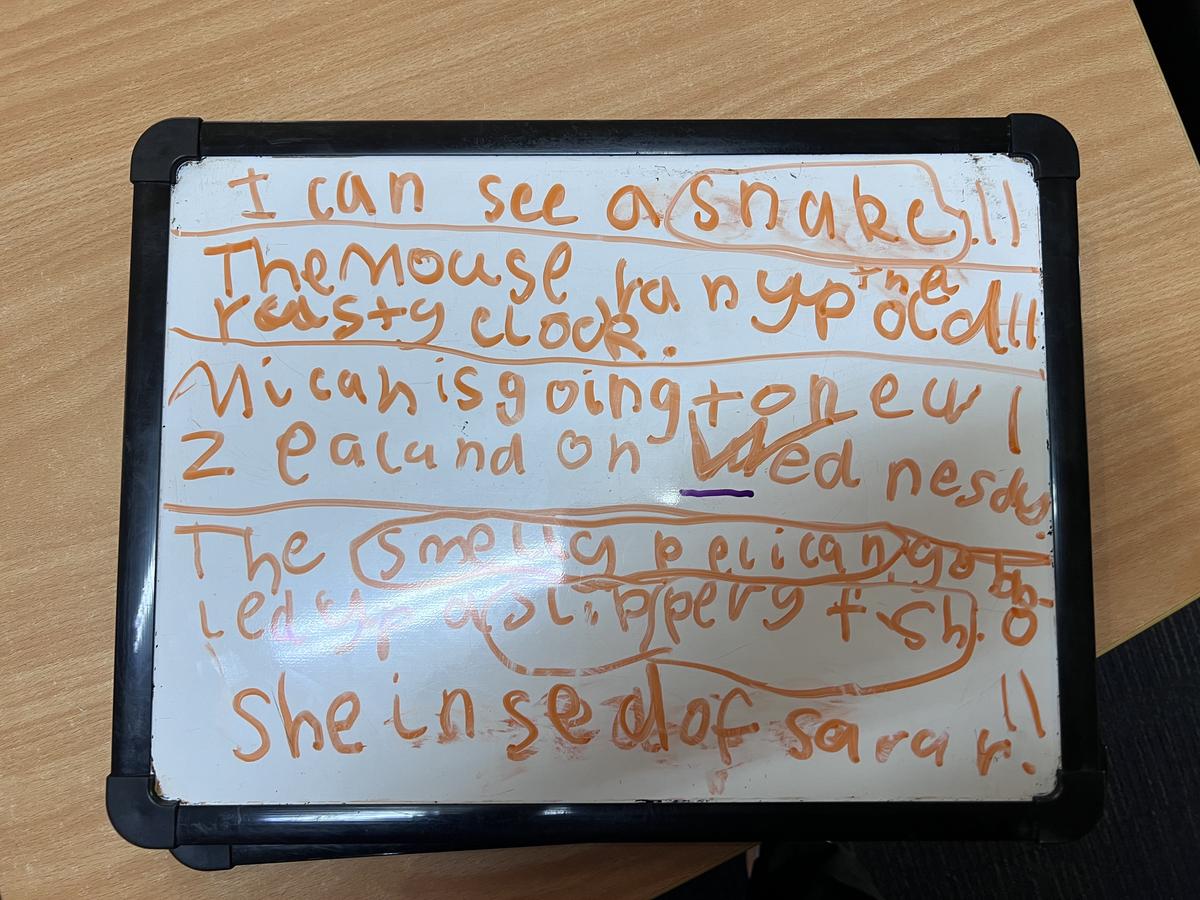 I can see a snake. !!
The Mouse ran up the old !!!
reasty clock.
Micah is going to new !
Zealand on Wednesday.
The smelly pelican gobb-
led up a slippery fish. o
She insed of sarah. !!